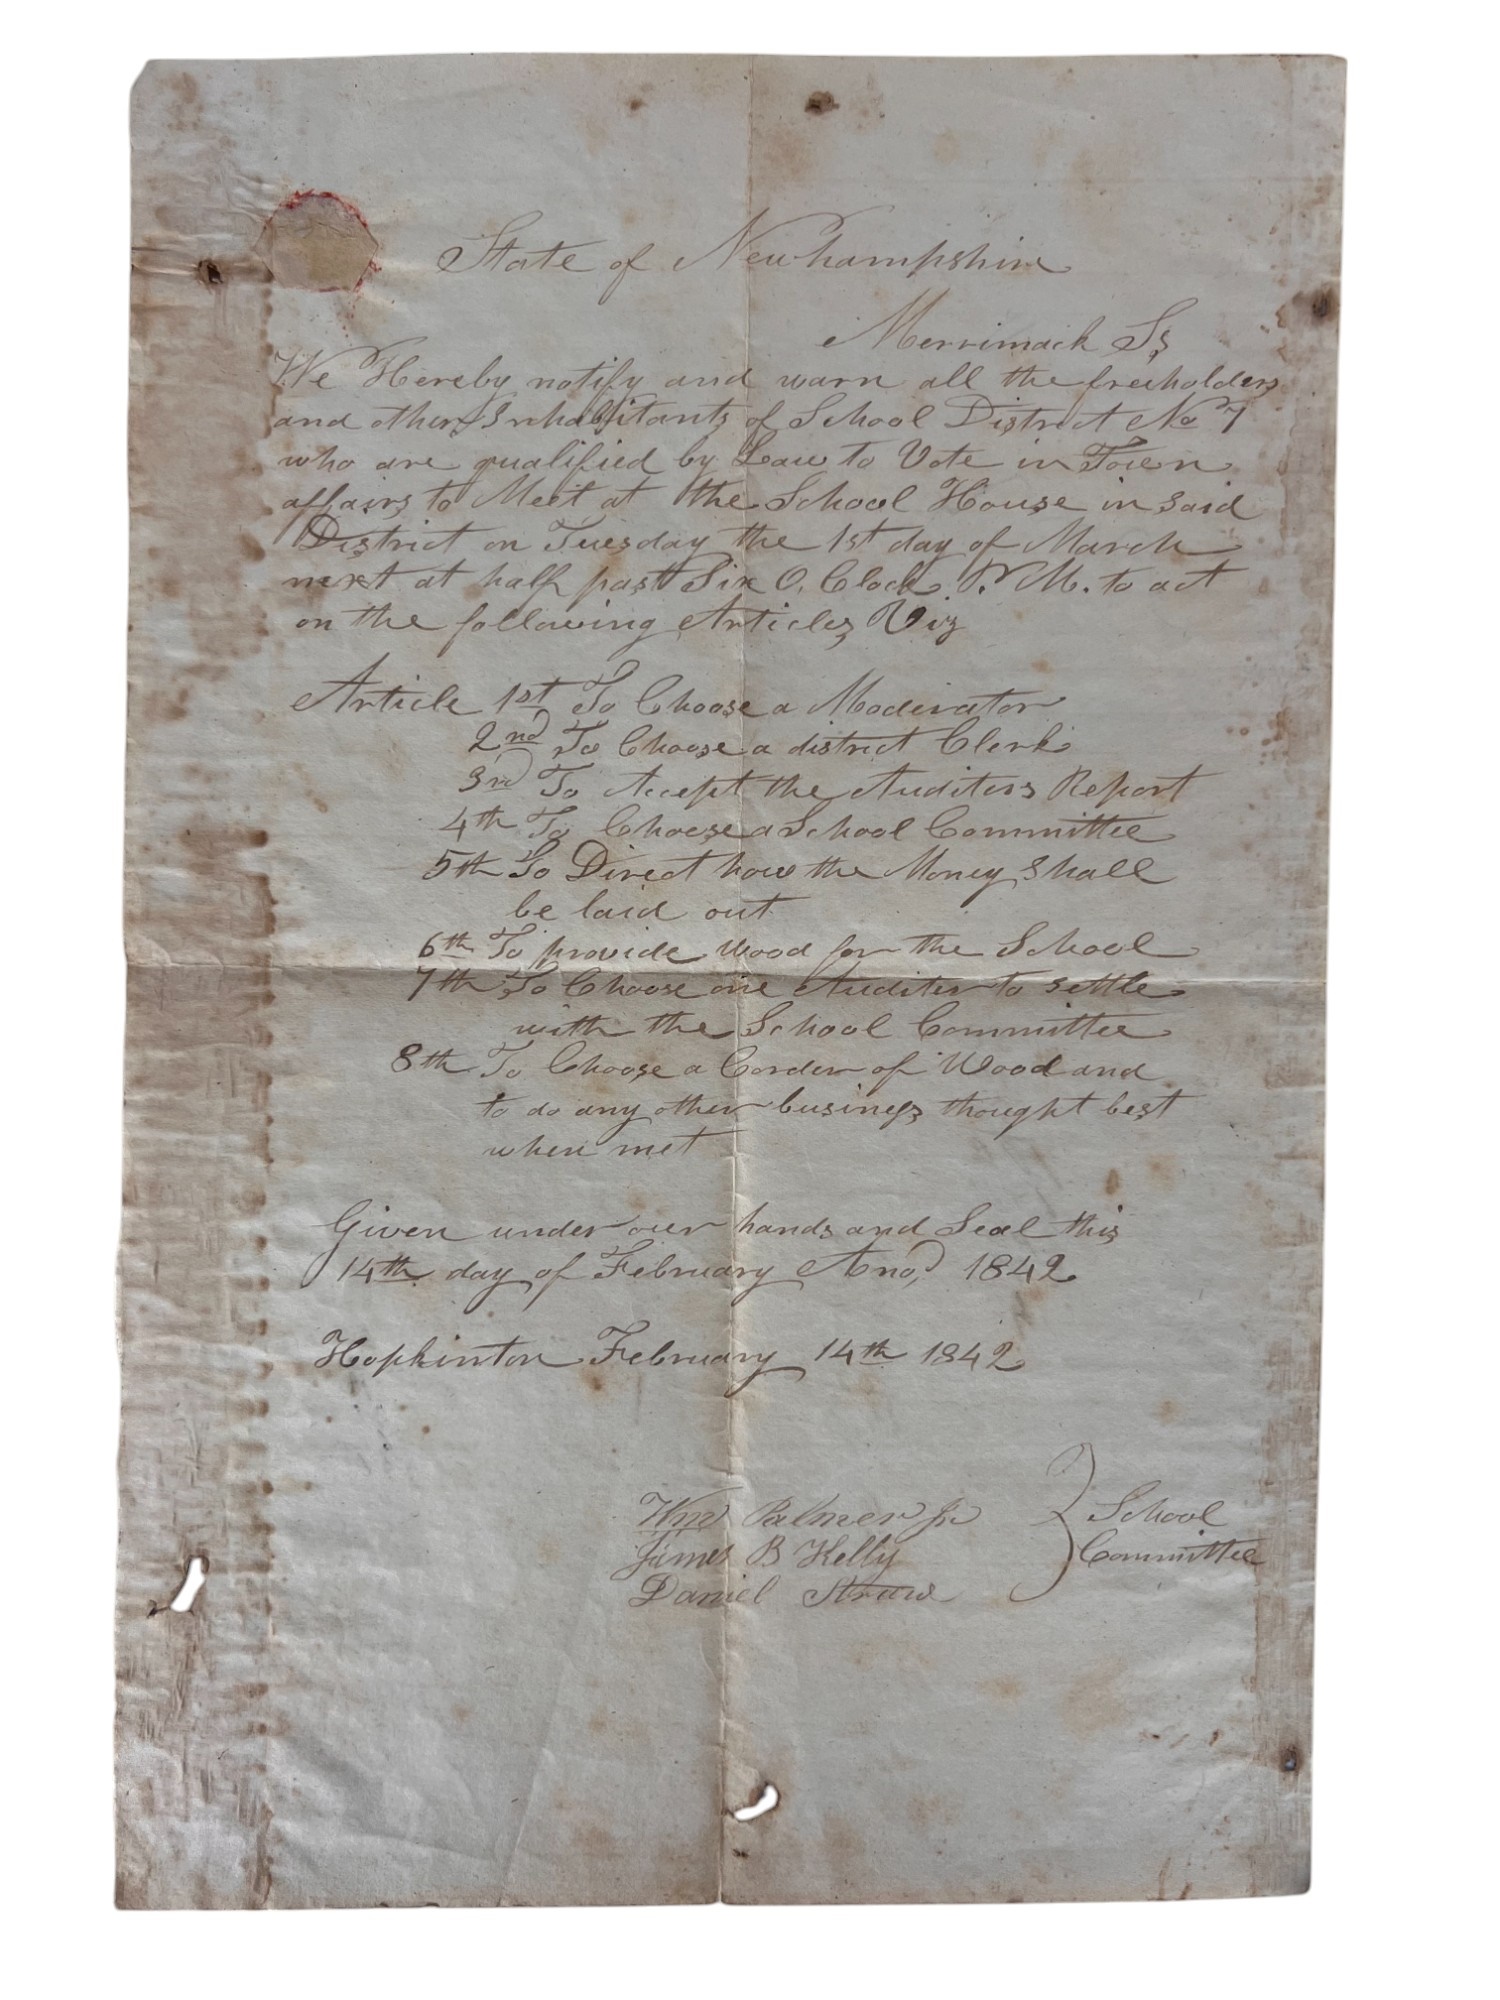 State of Newhampshire
Merrimack Ss
We Hereby notify and warn all the freeholders
and other Inhabitants of School District No 7
who are qualified by Law to Vote in Town
affairs to Meet at the School House in said
District on Tuesday the 1st day of March
next at half past Six O, Clock P. M. to act
on the following Articles Viz
Article 1st To Choose a Moderator
2nd To Choose a district Clerk
3rd To Accept the Auditors Report
4th To Choose a School Committee
5th To Direct how the Money shall
be laid out
6th To provide Wood for the School
7th To Choose one Auditer to settle
with the School Committee
8th To Choose a Corder of Wood and
to do any other business thought best
when met
Given under our hands and Seal this
14th day of February Anod 1842
Hopkinton February 14th 1842
Wm Palmer Jr } School
James B Kelly Committee
Daniel Straw